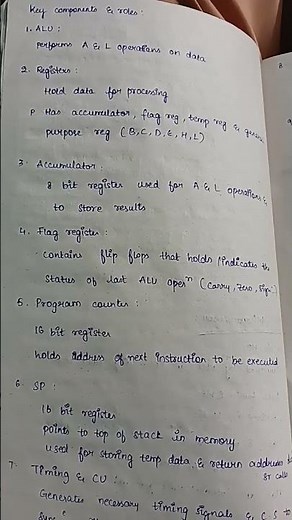 Key components & roles:
1. ALU:
performs A & L operations on data
2. Registers:
Hold data for processing
P Has accumulator, flag reg, temp reg &
purpose reg (B, C, D, E, H, L)
3. Accumulator.
8 bit register used for A & L operations &
to store results
4. Flag register:
contains flip flops that holds / indicates the
status of last ALU operⁿ (carry, zero, sign
5. Program counter:
16 bit register
holds address of next instruction to be executed
6. SP:
16 bit register
points to top of stack in memory
used for storing temp data & return address
7. Timing & CU:
Generates necessary timing signals & C S to
8